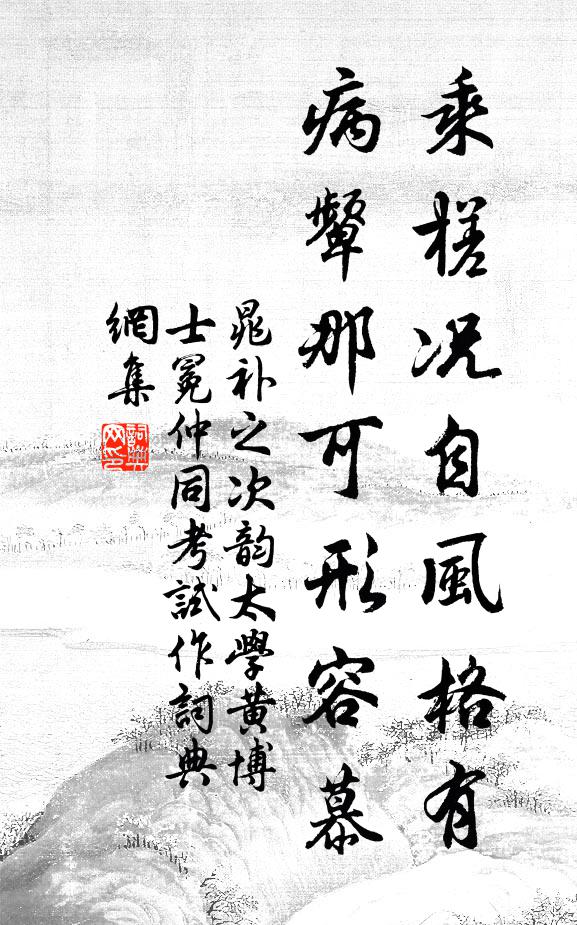 乘槎况自風格有
病顰那可形容慕
晁補之次韵太學黄博
士冕仲同考試作詞典
網集